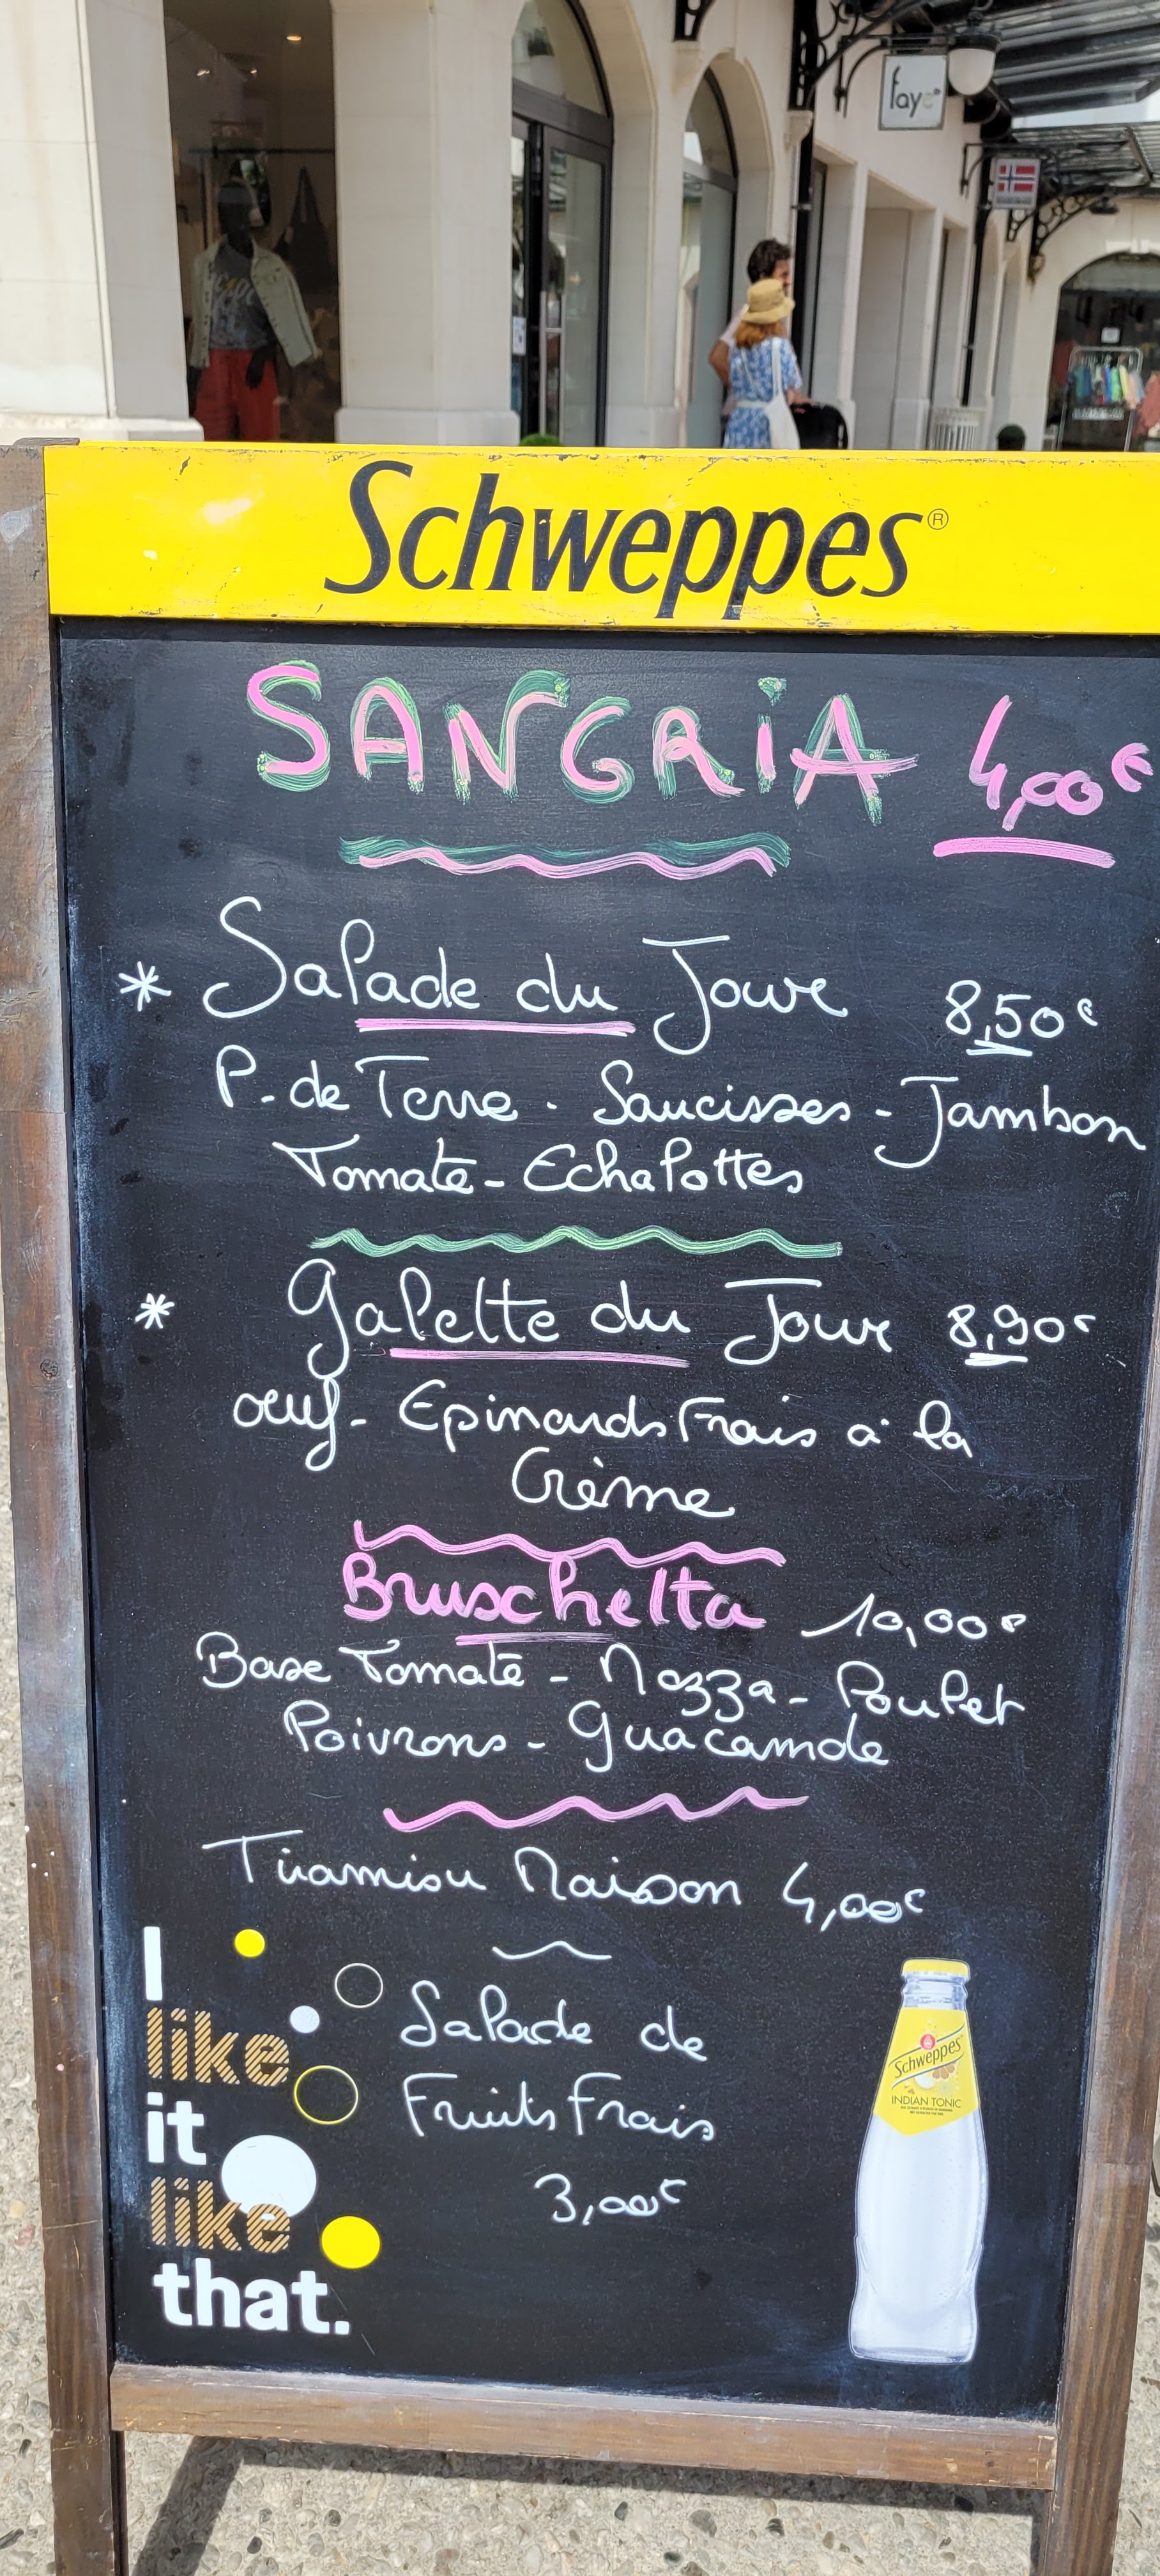 faye
Schweppes®
SANGRiA 4,00€
* Salade du Jour 8,50€
P. de Terre - Saucisses - Jambon
Tomate - Echalottes
* Galette du Jour 8,90€
œuf - Epinards Frais à la
Crème
Bruschetta 10,00€
Base Tomate - Mozza - Poulet
Poivrons - Guacamole
Tiramisu Maison 4,00€
Salade de
Fruits Frais
3,00€
I
like
it
like
that.
Schweppes
INDIAN TONIC